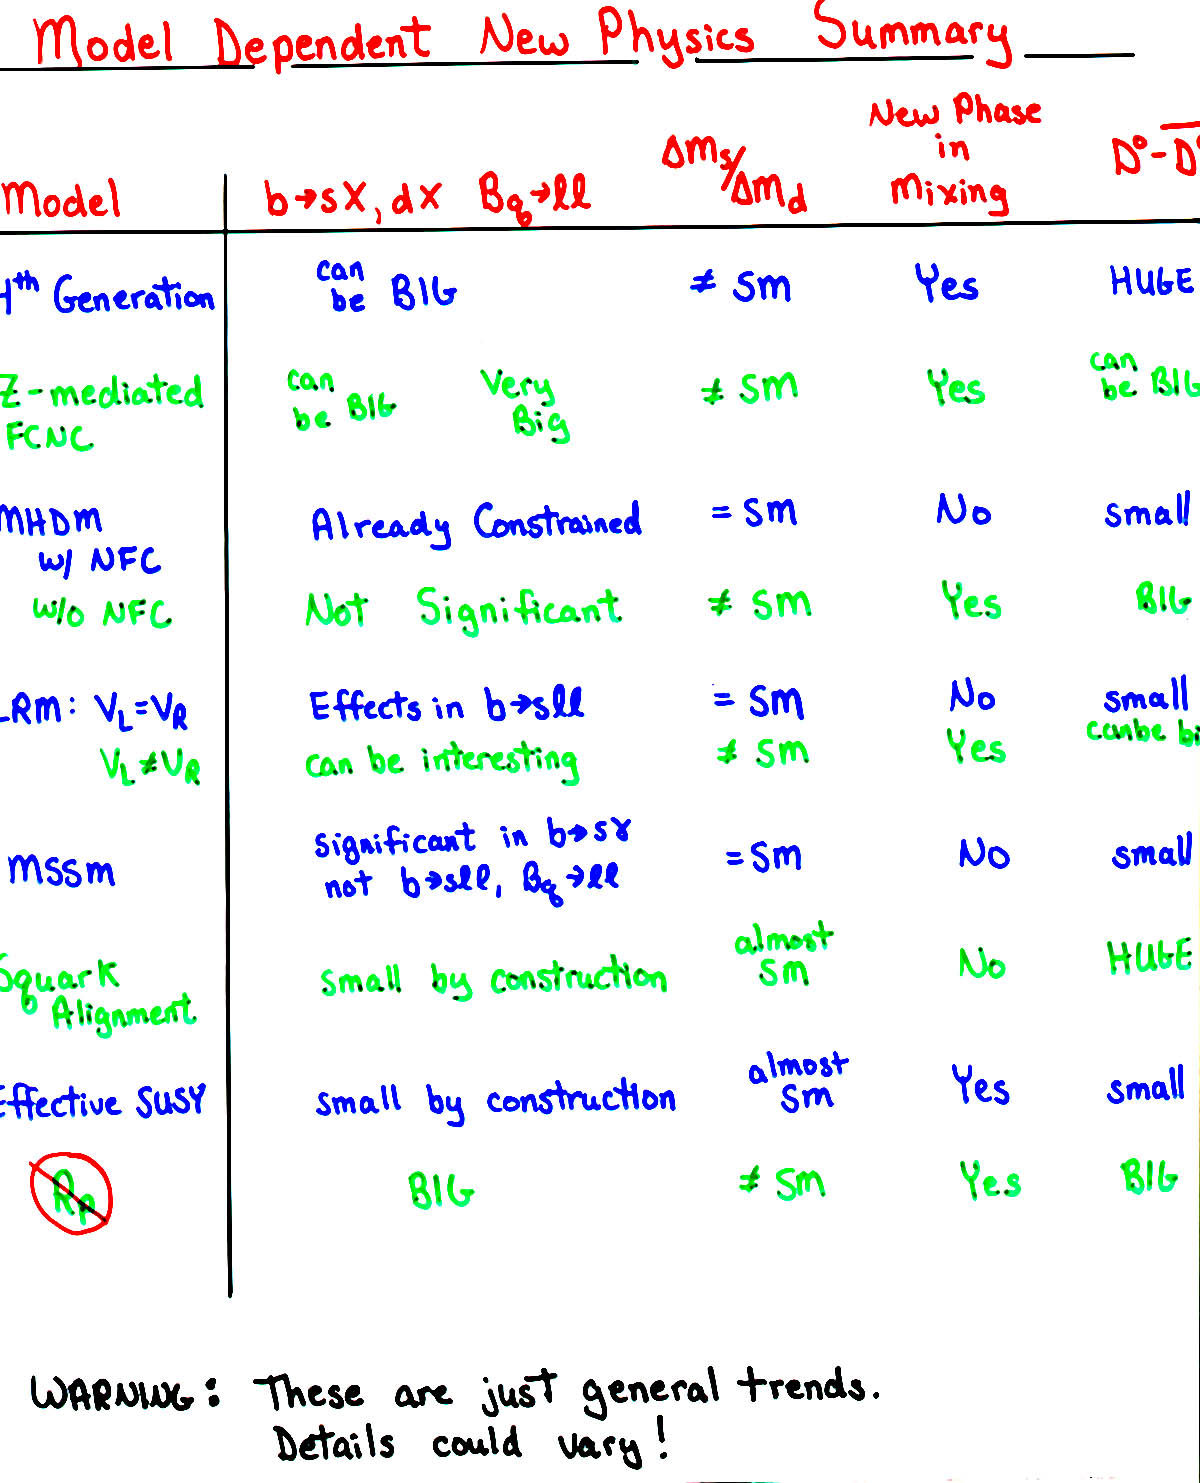 Model Dependent New Physics Summary
Model b→sX, dX Bq→ll Δms/Δmd New Phase in Mixing D⁰-D̄⁰
4th Generation can be BIG ≠ SM Yes HUGE
Z-mediated FCNC can be BIG Very Big ≠ SM Yes can be BIG
MHDM
w/ NFC Already Constrained = SM No small
w/o NFC Not Significant ≠ SM Yes BIG
LRM: VL=VR Effects in b→sll = SM No small
VL≠VR can be interesting ≠ SM Yes can be bi
MSSM significant in b→sγ = SM No small
not b→sll, Bq→ll
Squark Alignment small by construction almost SM No HUGE
Effective SUSY small by construction almost SM Yes small
Rp BIG ≠ SM Yes BIG
WARNING: These are just general trends.
Details could vary!